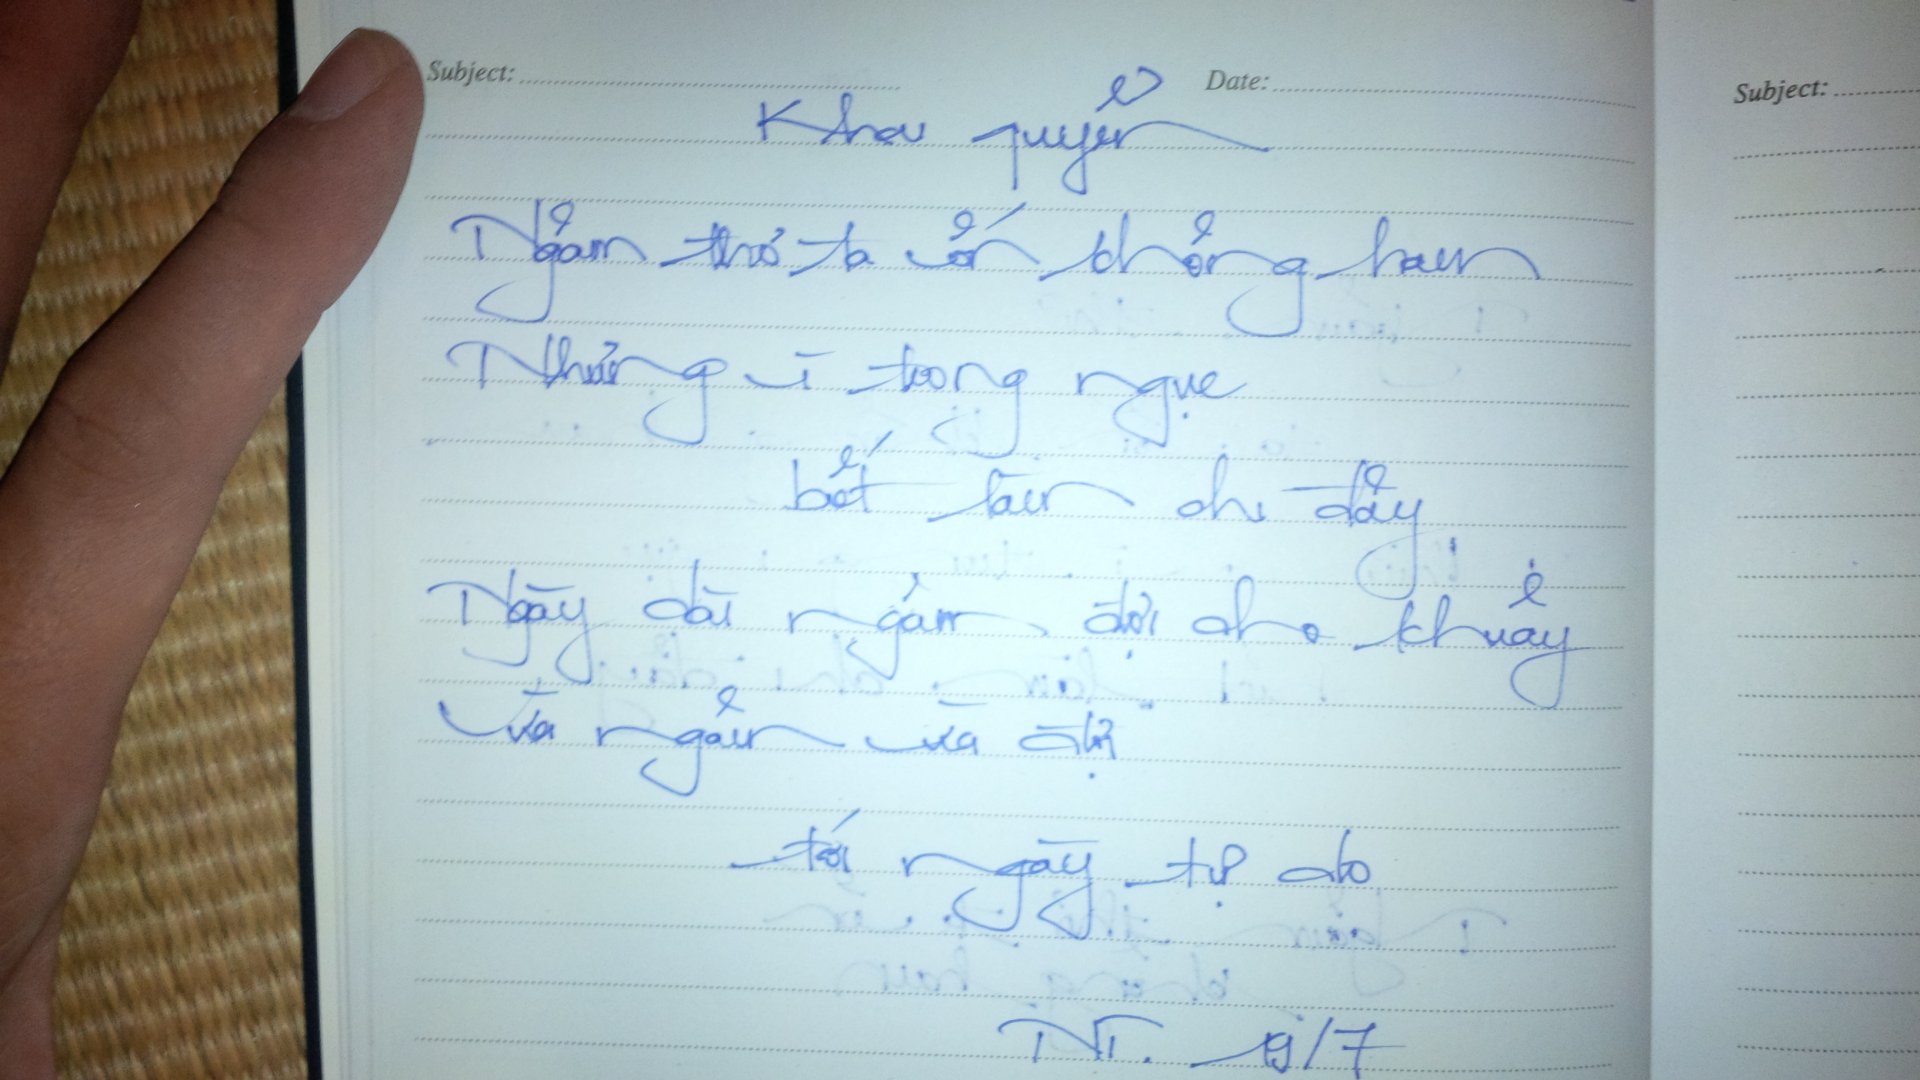 Subject: Date:
Subject:
Khai quyển
Ngâm thơ ta vốn không ham
Nhưng vì trong ngục
biết làm chi đây
Ngày dài ngâm đợi cho khuây
Vừa ngâm vừa đợi
tới ngày tự do
NT. 19/7